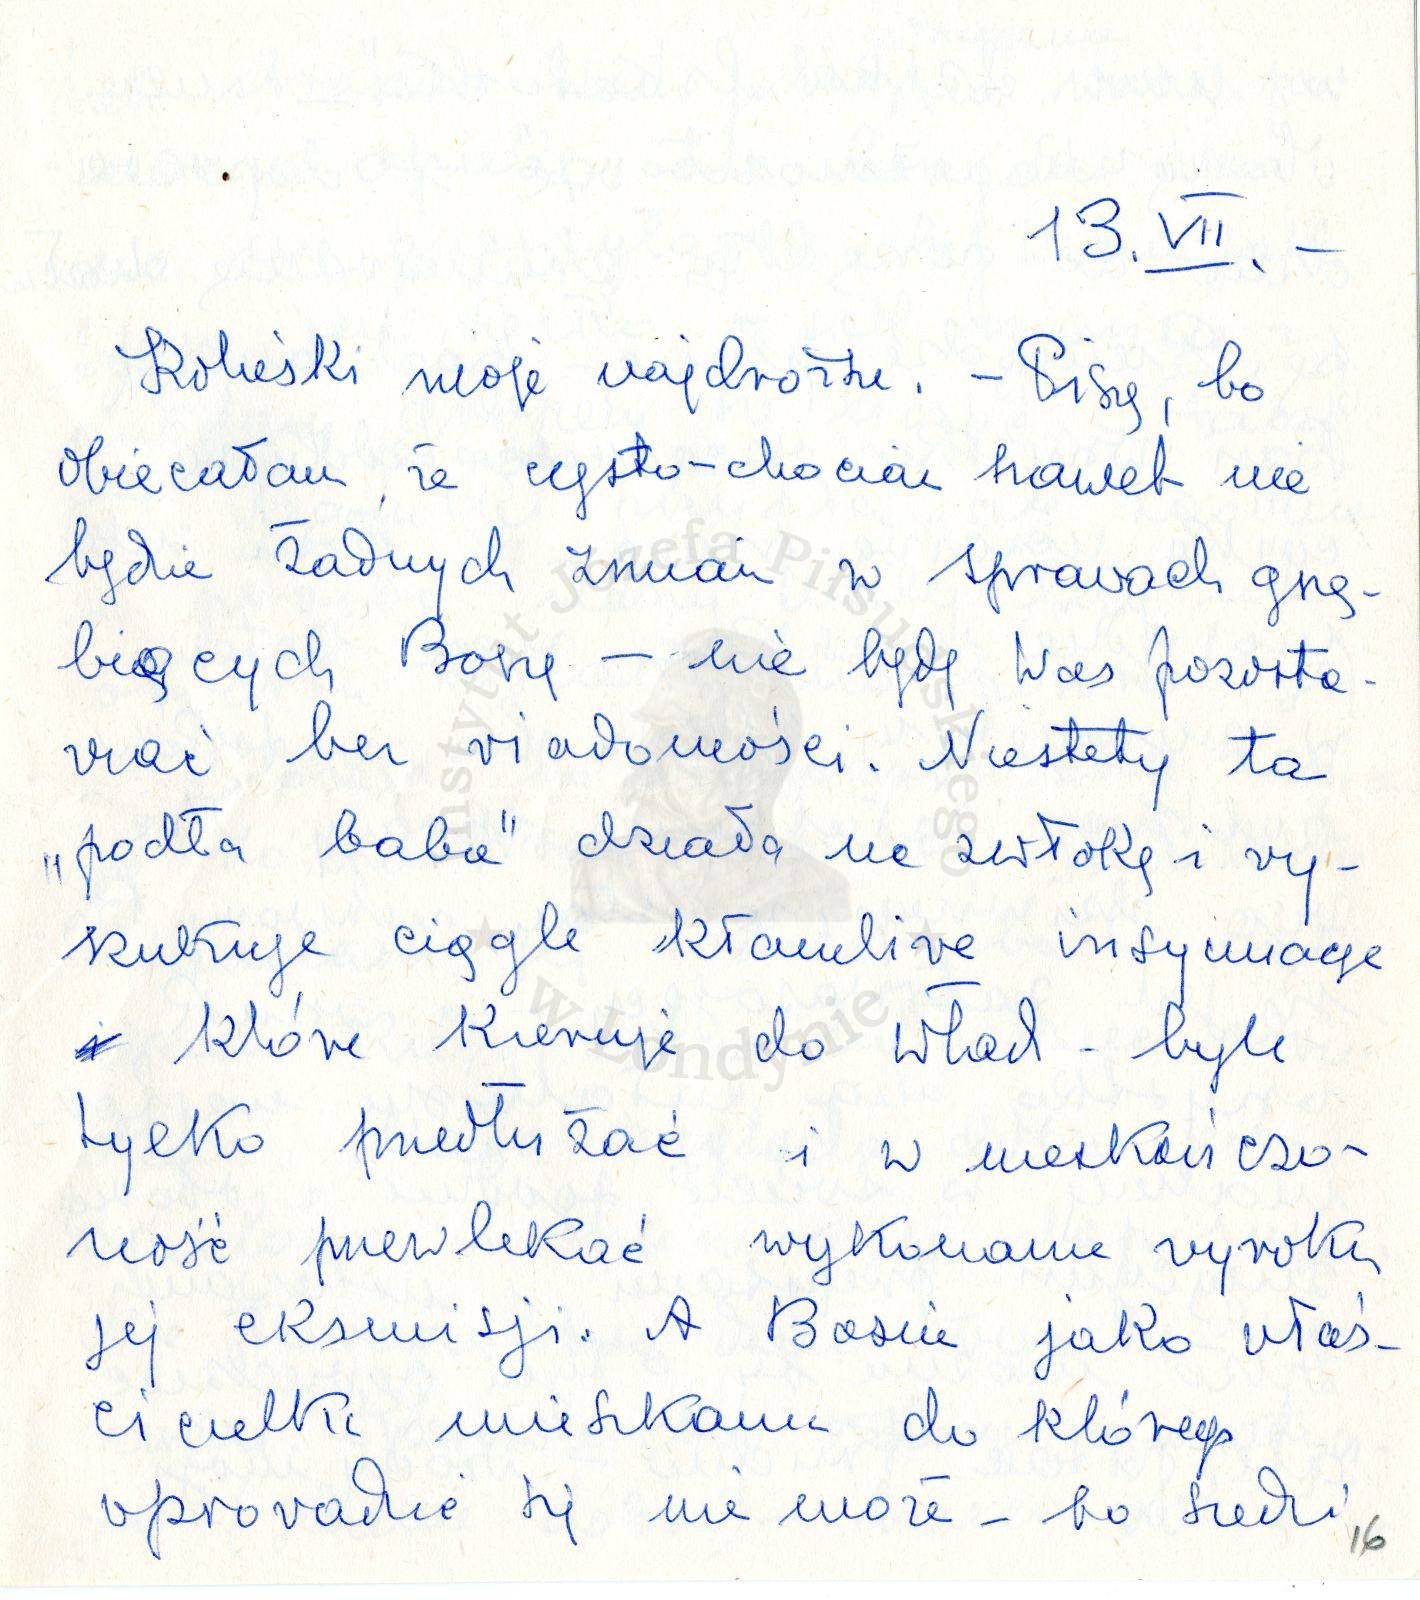 13.VII. –
Kotuśki moje najdroższe. – Piszę, bo
obiecałam, że często – chociaż nawet nie
będzie żadnych zmian w sprawach gnę-
biących Bożę – nie będę Was pozosta-
wiać bez wiadomości. Niestety ta
„podła baba" działa na zwłokę i wy-
kukuje ciągle kłamliwe insynuacje
które kieruje do władz – byle
tylko przedłużać i w nieskończo-
ność przewlekać wykonanie wyroku
jej eksmisji. A Bosia jako właś-
cicielka mieszkania do którego
wprowadzić się nie może – bo siedzi
16
Instytut Józefa Piłsudskiego
w Londynie